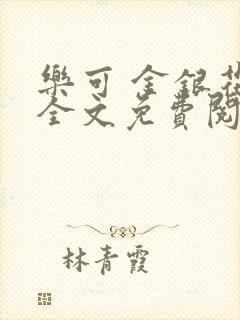 樂可 金銀花
全文免費閱
林青霞